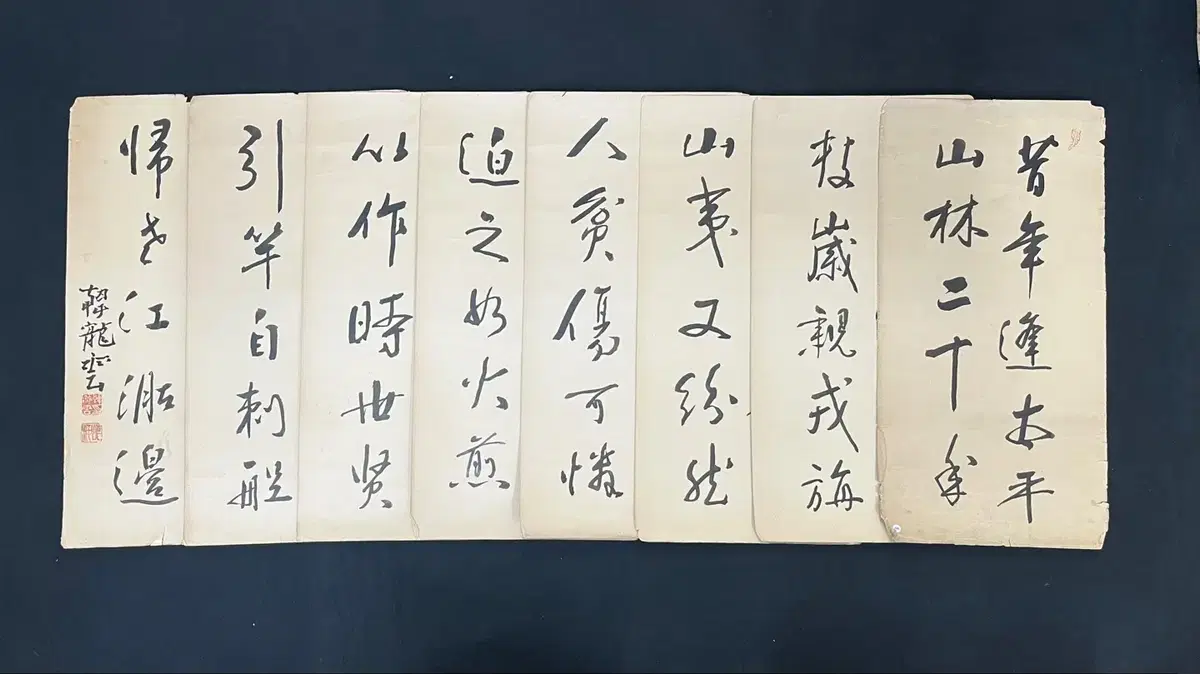 昔年逢太平
山林二十年
數歲親戎旃
山夷又紛然
人貧傷可憐
迫之如火煎
以作時世賢
引竿自刺船
歸老江湖邊
韓龍雲